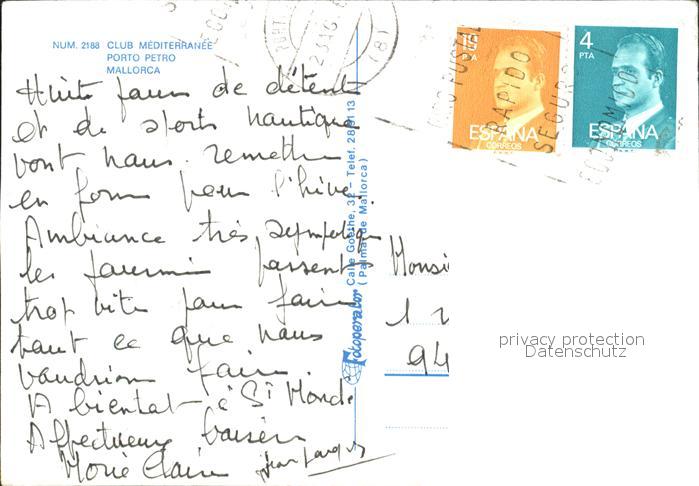 NUM. 2188 CLUB MÉDITERRANÉE
PORTO PETRO
MALLORCA
Huit jours de détente
et de sports nautiques
vont nous remettre
en forme pour l'hiver.
Ambiance très sympathique
les journées passent
trop vite pour faire
tout ce que nous
voudrions faire.
A bientôt à St Mandé
Affectueux baisers
Marie Claire Jean Jacques
Fotoperator Calle Goethe, 32 - Telef.
(Palma de Mallorca)
15
PTA
ESPAÑA
CORREOS
4
PTA
ESPAÑA
CORREOS
POSTAL
RAPIDO
SEGURO
ECONOMICO
Monsi
1
94
privacy protection
Datenschutz